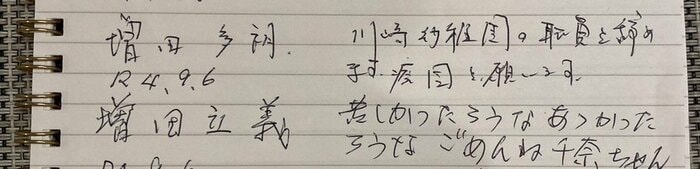 増田
川崎幼稚園の職員を辞め
R4.9.6
ます。廃園を願います。
増田立義
苦しかったろうなあつかった
ろうな ごめんね千奈ちゃん